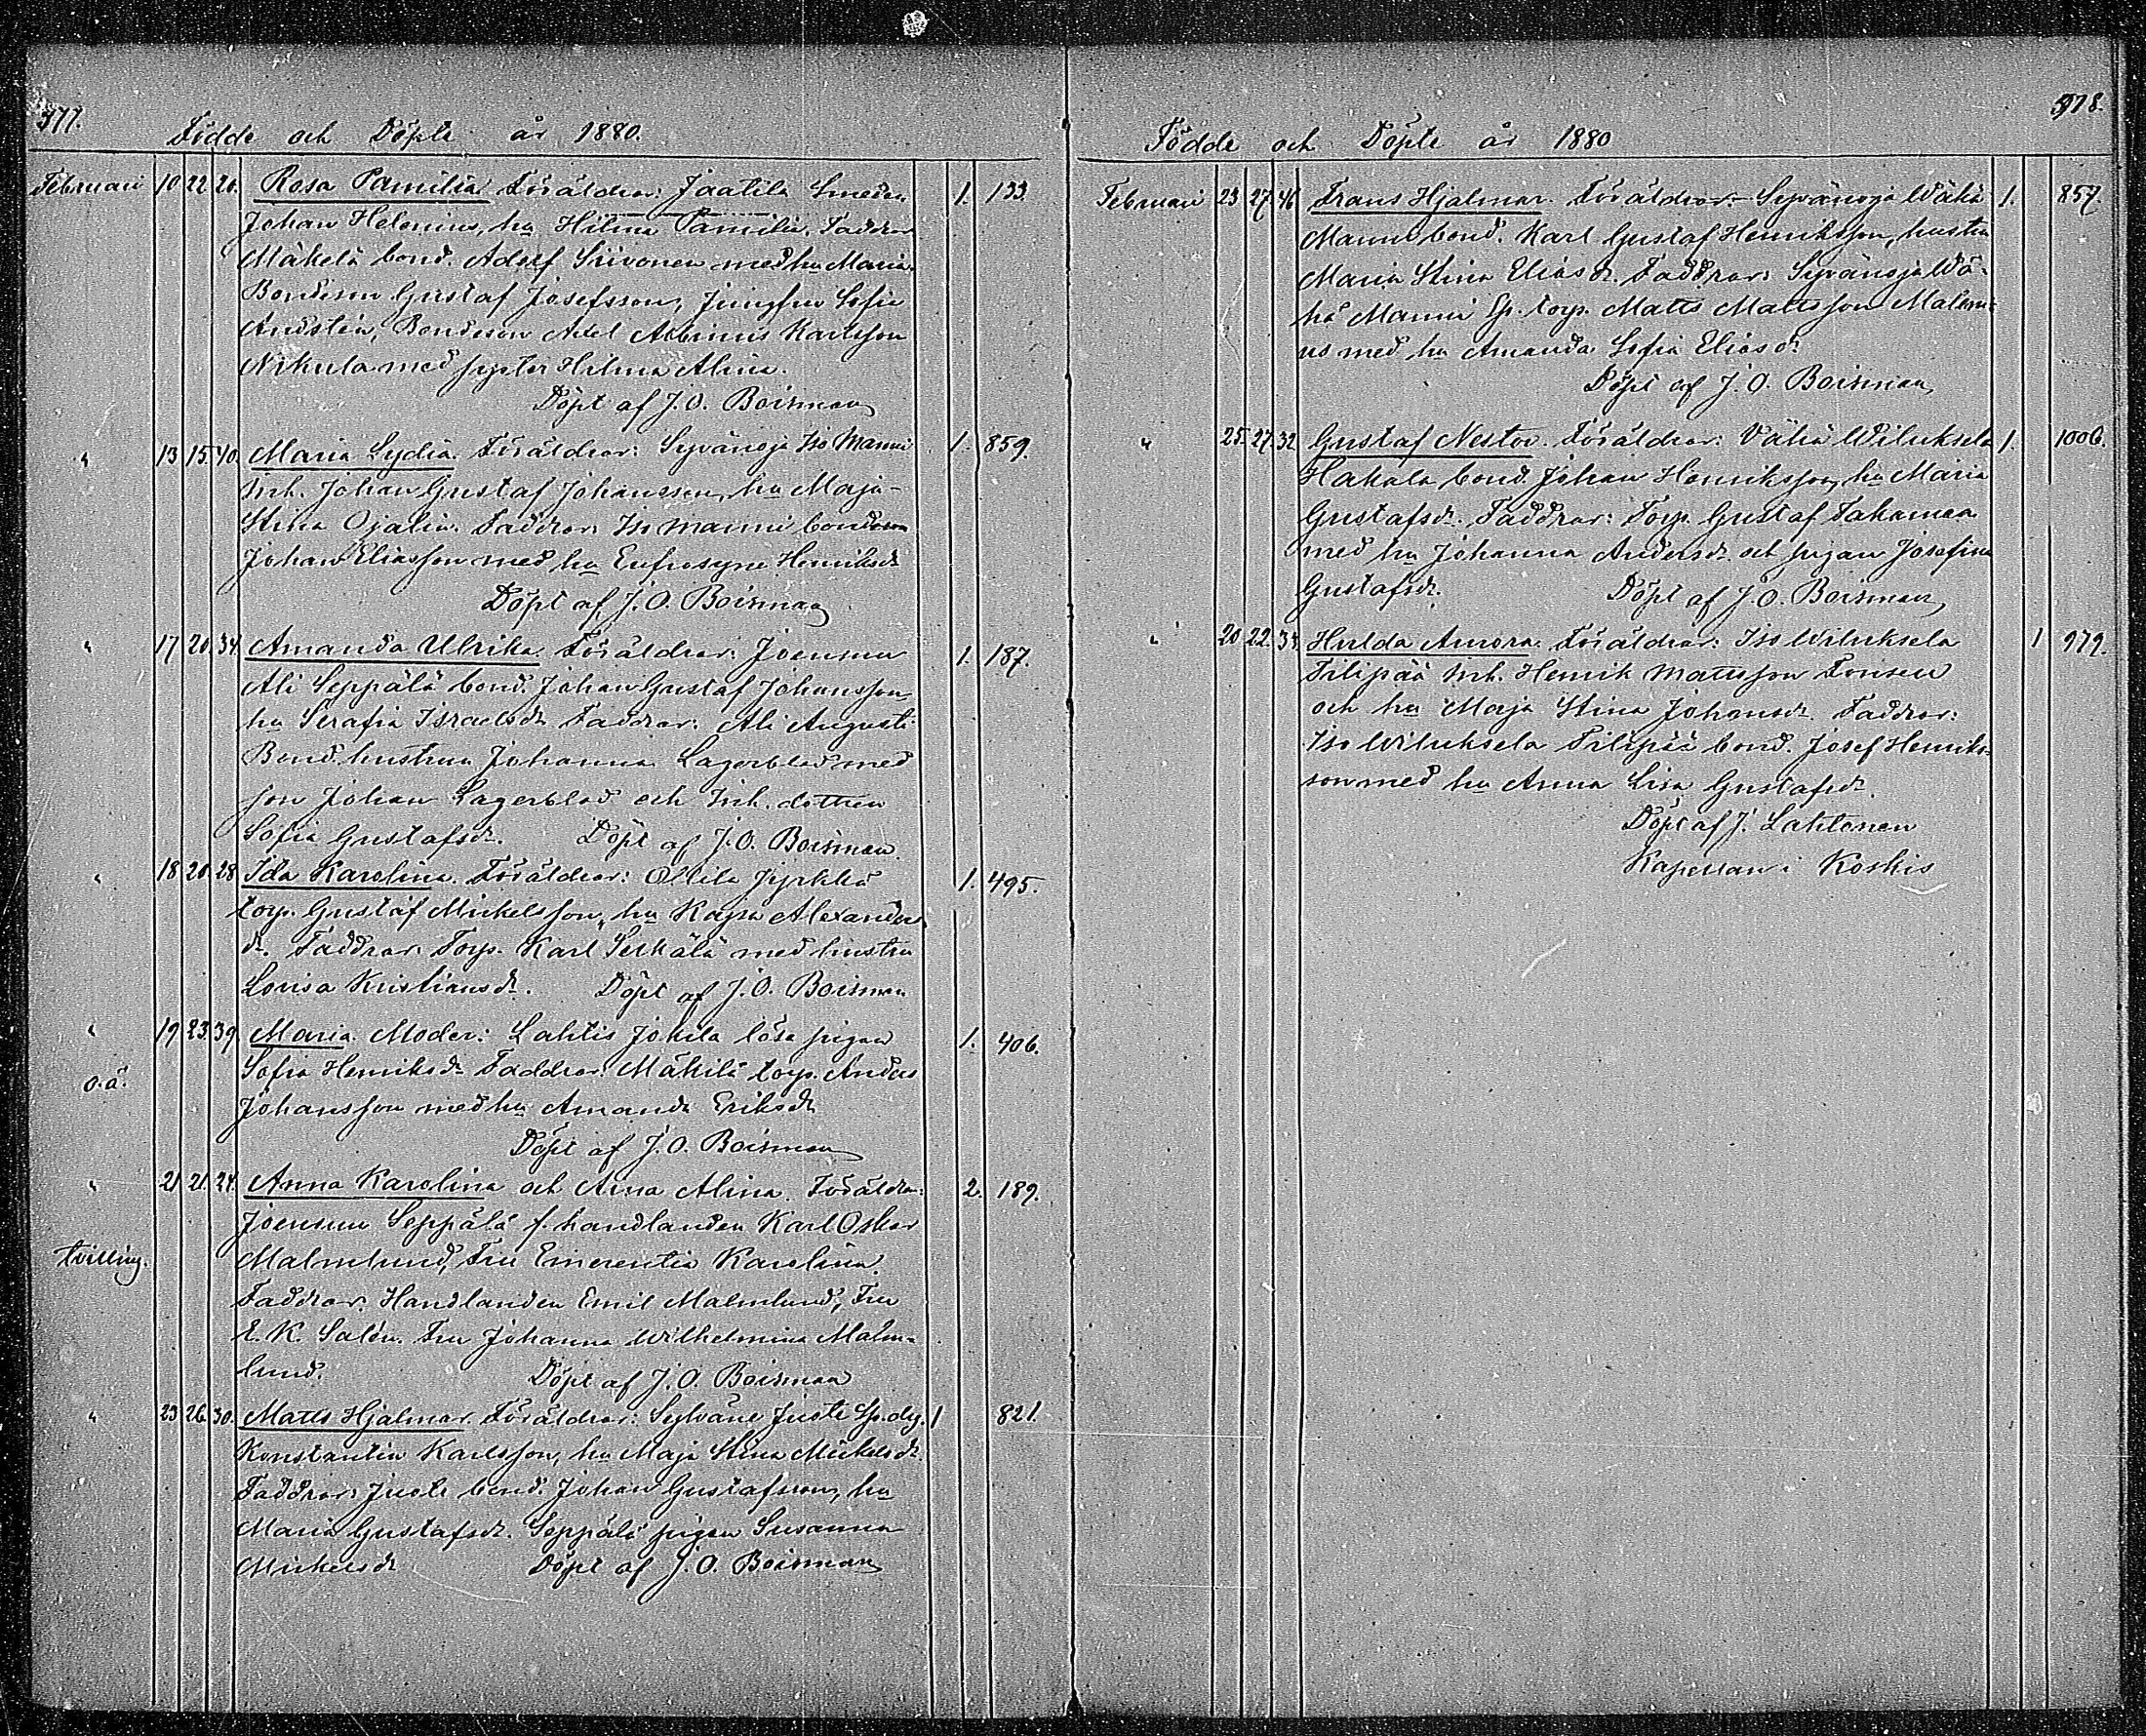 377.
Födde och Döpte år 1880.
Februari 10 22 20. Rosa Pamilia. Föräldrar: Jaatila Smeden 1. 133.
Johan Helenius, hu Hilma Pamilia. Faddrar
Mäkelä bond. Adolf Siivonen med hu Maria.
Bondeson Gustaf Josefsson, Jungfru Sofia
Andstén, Bondeson Axel Albinus Karlsson
Nikula med syster Hilma Alina.
Döpt af J. O. Boisman
" 13 15. 40. Maria Lydia. Föräldrar: Syvänoja Iso Manni 1. 859.
Inh. Johan Gustaf Johansson, hu Maja-
Stina Ojalin. Faddrar: Iso Manni bondeson
Johan Eliasson med hu Eufrosyne Henriksdr
Döpt af J. O. Boisman
" 17 20. 34. Amanda Ulrika. Föräldrar: Joensuu 1. 187.
Ali Seppälä bond. Johan Gustaf Johansson
hu Serafia Israelsdr. Faddrar: Ali Augusti
Bond. hustrun Johanna Lagerblad med
son Johan Lagerblad och Inh. dottren
Sofia Gustafsdr. Döpt af J. O. Boisman
" 18 20. 28. Ida Karolina. Föräldrar: Ollila Jyrkkä 1. 495.
torp. Gustaf Mickelsson, hu Kajsa Alexanders
dr. Faddrar: Torp. Karl Serkälä med hustru
Lovisa Kristiansdr. Döpt af J. O. Boisman
" 19 23. 39. Maria. Moder: Lahtis Jokela lösa pigan 1. 406.
o.ä. Sofia Henriksdr. Faddrar: Mäkilä torp. Anders
Johansson med hu Amanda Eriksdr
Döpt af J. O. Boisman
" 21 21. 24. Anna Karolina och Aina Alina. Föräldrar: 2. 189.
Joensuu Seppälä f. handlanden Karl Oskar
tvilling. Malmlund, Fru Emerentia Karolina.
Faddrar: Handlanden Emil Malmlund, Fru
E. K. Salén. Fru Johanna Wilhelmina Malm-
lund. Döpt af J. O. Boisman
" 23 26. 30. Matts Hjalmar. Föräldrar: Sylväne Juote Sp. drg. 1 821.
Konstantin Karlsson, hu Maja Stina Mickelsdr.
Faddrar: Juote bond. Johan Gustafsson, hu
Maria Gustafsdr. Seppälä pigan Susanna
Mickelsdr Döpt af J. O. Boisman
378.
Födde och Döpte år 1880
Februari 23 27. 46 Frans Hjalmar. Föräldrar: Syvänoja Wähä 1. 857.
Manni bond. Karl Gustaf Henriksson, hustru
Maria Stina Eliasdr. Faddrar: Syvänoja Wä-
hä Manni Sp. torp. Matts Mattsson Malen-
us med hu Amanda Sofia Eliasdr
Döpt af J. O. Boisman
" 25. 27. 32 Gustaf Nestor. Föräldrar: Vähä Wiluksela 1. 1006.
Hakala bond. Johan Henriksson, hu Maria
Gustafsdr. Faddrar: Torp. Gustaf Takamaa
med hu Johanna Andersdr och pigan Josefina
Gustafsdr. Döpt af J. O. Boisman
" 20 22. 34. Hulda Aurora. Föräldrar: Iso Wiluksela 1 979.
Filipää Inh. Henrik Mattsson Forsen
och hu Maja Stina Johansdr. Faddrar:
Iso Wiluksela Filipää bond. Josef Henriks-
son med hu Anna Lisa Gustafsdr.
Döpt af J. Lahtonen
Kapellan i Koskis